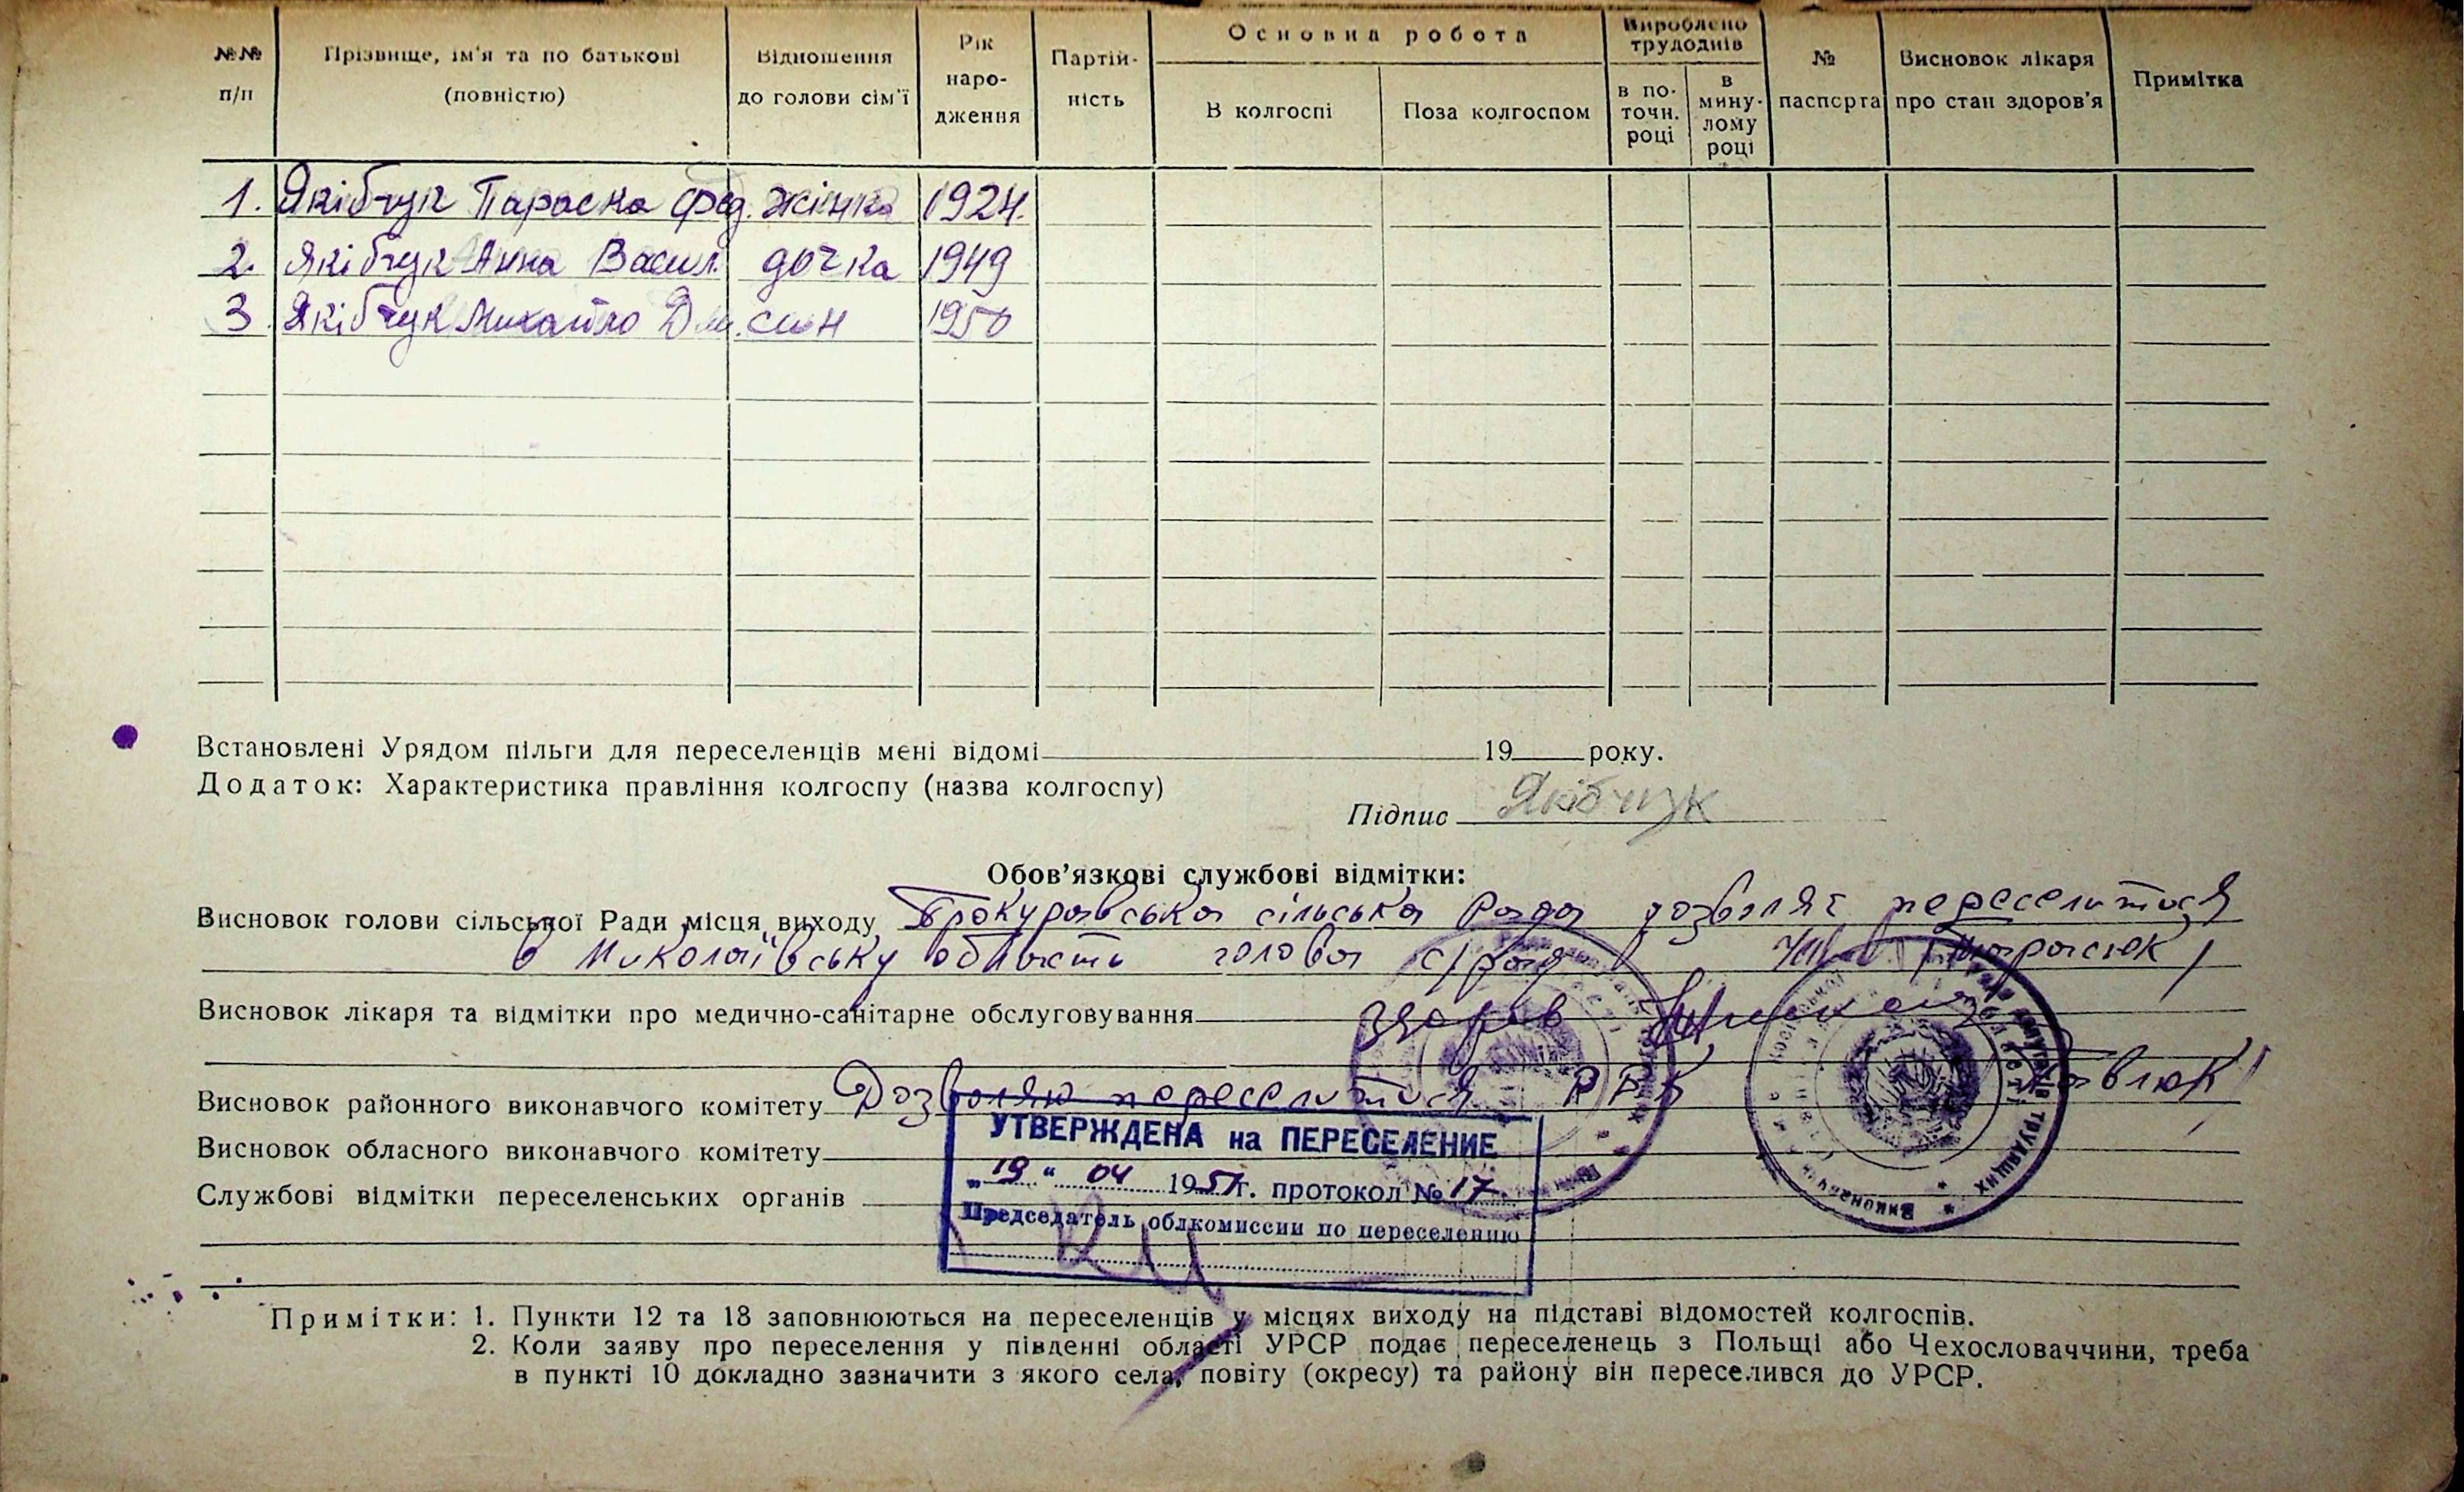 №№ п/п | Прізвище, ім'я та по батькові (повністю) | Відношення до голови сім'ї | Рік народження | Партійність | Основна робота | Вироблено трудоднів | № паспорта | Висновок лікаря про стан здоров'я | Примітка
В колгоспі | Поза колгоспом | в поточн. році | в минулому році
1. Якібчук Параска Фед. жінка 1924.
2. Якібчук Анна Васил. дочка 1949
3. Якібчук Михайло Дм. син 1950
Встановлені Урядом пільги для переселенців мені відомі 19 року.
Додаток: Характеристика правління колгоспу (назва колгоспу)
Підпис Якібчук
Обов'язкові службові відмітки:
Висновок голови сільської Ради місця виходу Прокуравська сільська Рада дозволяє переселитися
в Миколаївську область голова с/ради
Висновок лікаря та відмітки про медично-санітарне обслуговування здоров
Висновок районного виконавчого комітету Дозволяю переселитися
Висновок обласного виконавчого комітету
Службові відмітки переселенських органів
УТВЕРЖДЕНА на ПЕРЕСЕЛЕНИЕ
„19“ 04 1951г. протокол № 17.
Председатель облкомиссии по переселению
Примітки: 1. Пункти 12 та 18 заповнюються на переселенців у місцях виходу на підставі відомостей колгоспів.
2. Коли заяву про переселення у південні області УРСР подає переселенець з Польщі або Чехословаччини, треба
в пункті 10 докладно зазначити з якого села, повіту (окресу) та району він переселився до УРСР.